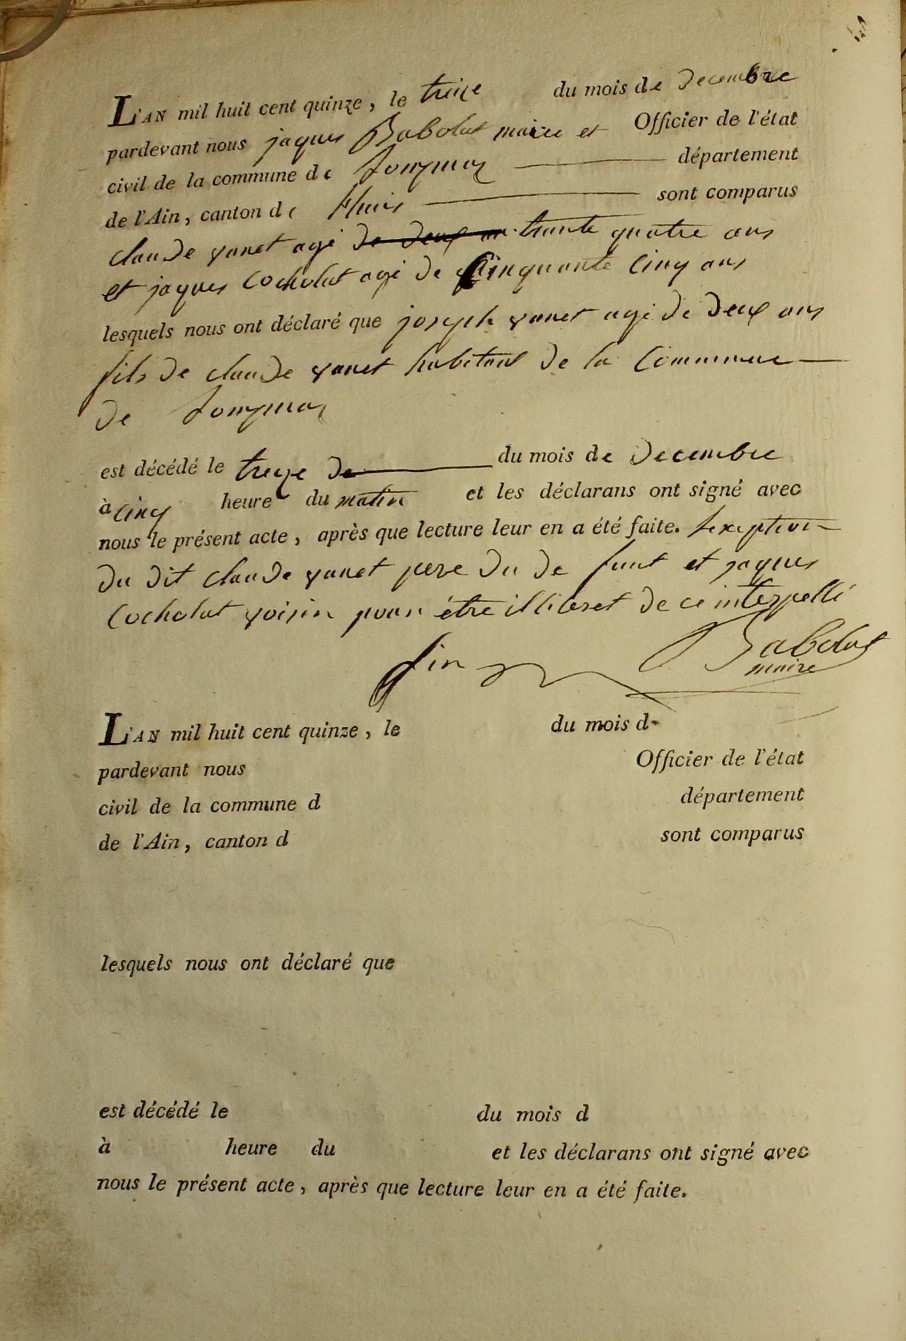 L'AN mil huit cent quinze, le treize du mois de decembre
pardevant nous jaques Babolat maire et Officier de l'état
civil de la commune de département
de l'Ain, canton de sont comparus
claude vanet agé de deux trante quatre ans
et jaques Cocholat agé de Cinquante Cinq ans
lesquels nous ont déclaré que joseph vanet agé de deux ans
fils de claude vanet habitant de la Commune
de
est décédé le treize de du mois de decembre
à cinq heure du matin et les déclarans ont signé avec
nous le présent acte, après que lecture leur en a été faite.
du dit claude vanet pere du de funt et jaques
Cocholat voisin pour être illiteret de ce interpellé
fin Babolat
maire
L'AN mil huit cent quinze, le du mois d
pardevant nous Officier de l'état
civil de la commune d département
de l'Ain, canton d sont comparus
lesquels nous ont déclaré que
est décédé le du mois d
à heure du et les déclarans ont signé avec
nous le présent acte, après que lecture leur en a été faite.